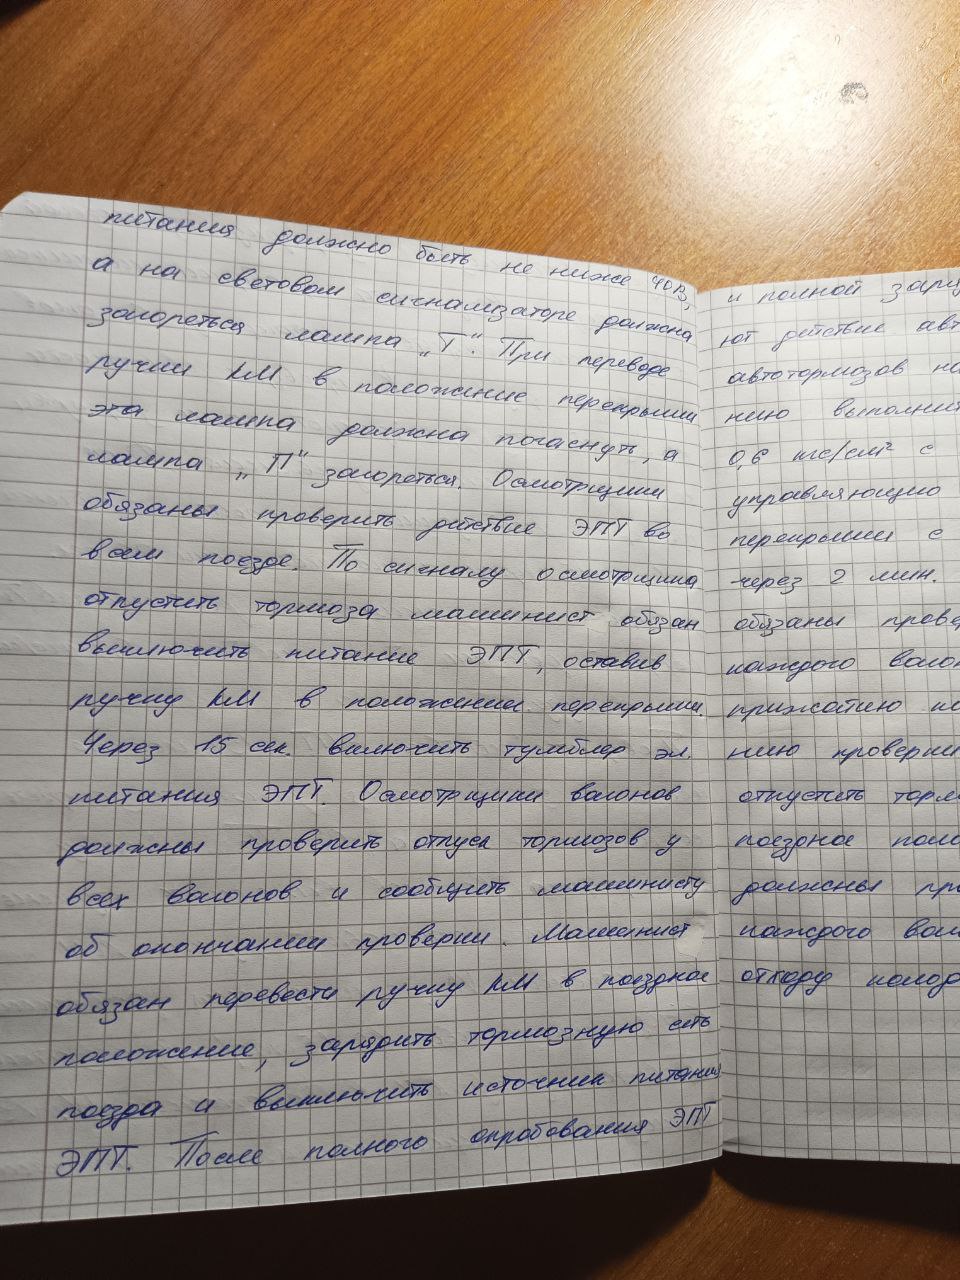 питания должно быть не ниже 40В,
а на световом сигнализаторе должна
загореться лампа „Т". При переводе
ручки КМ в положение перекрыши
эта лампа должна погаснуть, а
лампа „П" загореться. Осмотрщики
обязаны проверить действие ЭПТ во
всем поезде. По сигналу осмотрщика
отпустить тормоза машинист обязан
выключить питание ЭПТ, оставив
ручку КМ в положении перекрыши.
Через 15 сек. включить тумблер эл.
питания ЭПТ. Осмотрщики вагонов
должны проверить отпуск тормозов у
всех вагонов и сообщить машинисту
об окончании проверки. Машинист
обязан перевести ручку КМ в поездное
положение, зарядить тормозную сеть
поезда и выключить источник питания
ЭПТ. После полного опробования ЭПТ
и полной заря
ют действие авт
автотормозов на
нию выполнит
0,6 кгс/см² с
управляющую
перекрыши с
через 2 мин.
обязаны прове
каждого вагон
прижатию
нию проверки
отпустить торм
поездное поло
должны про
каждого ваг
отходу колод